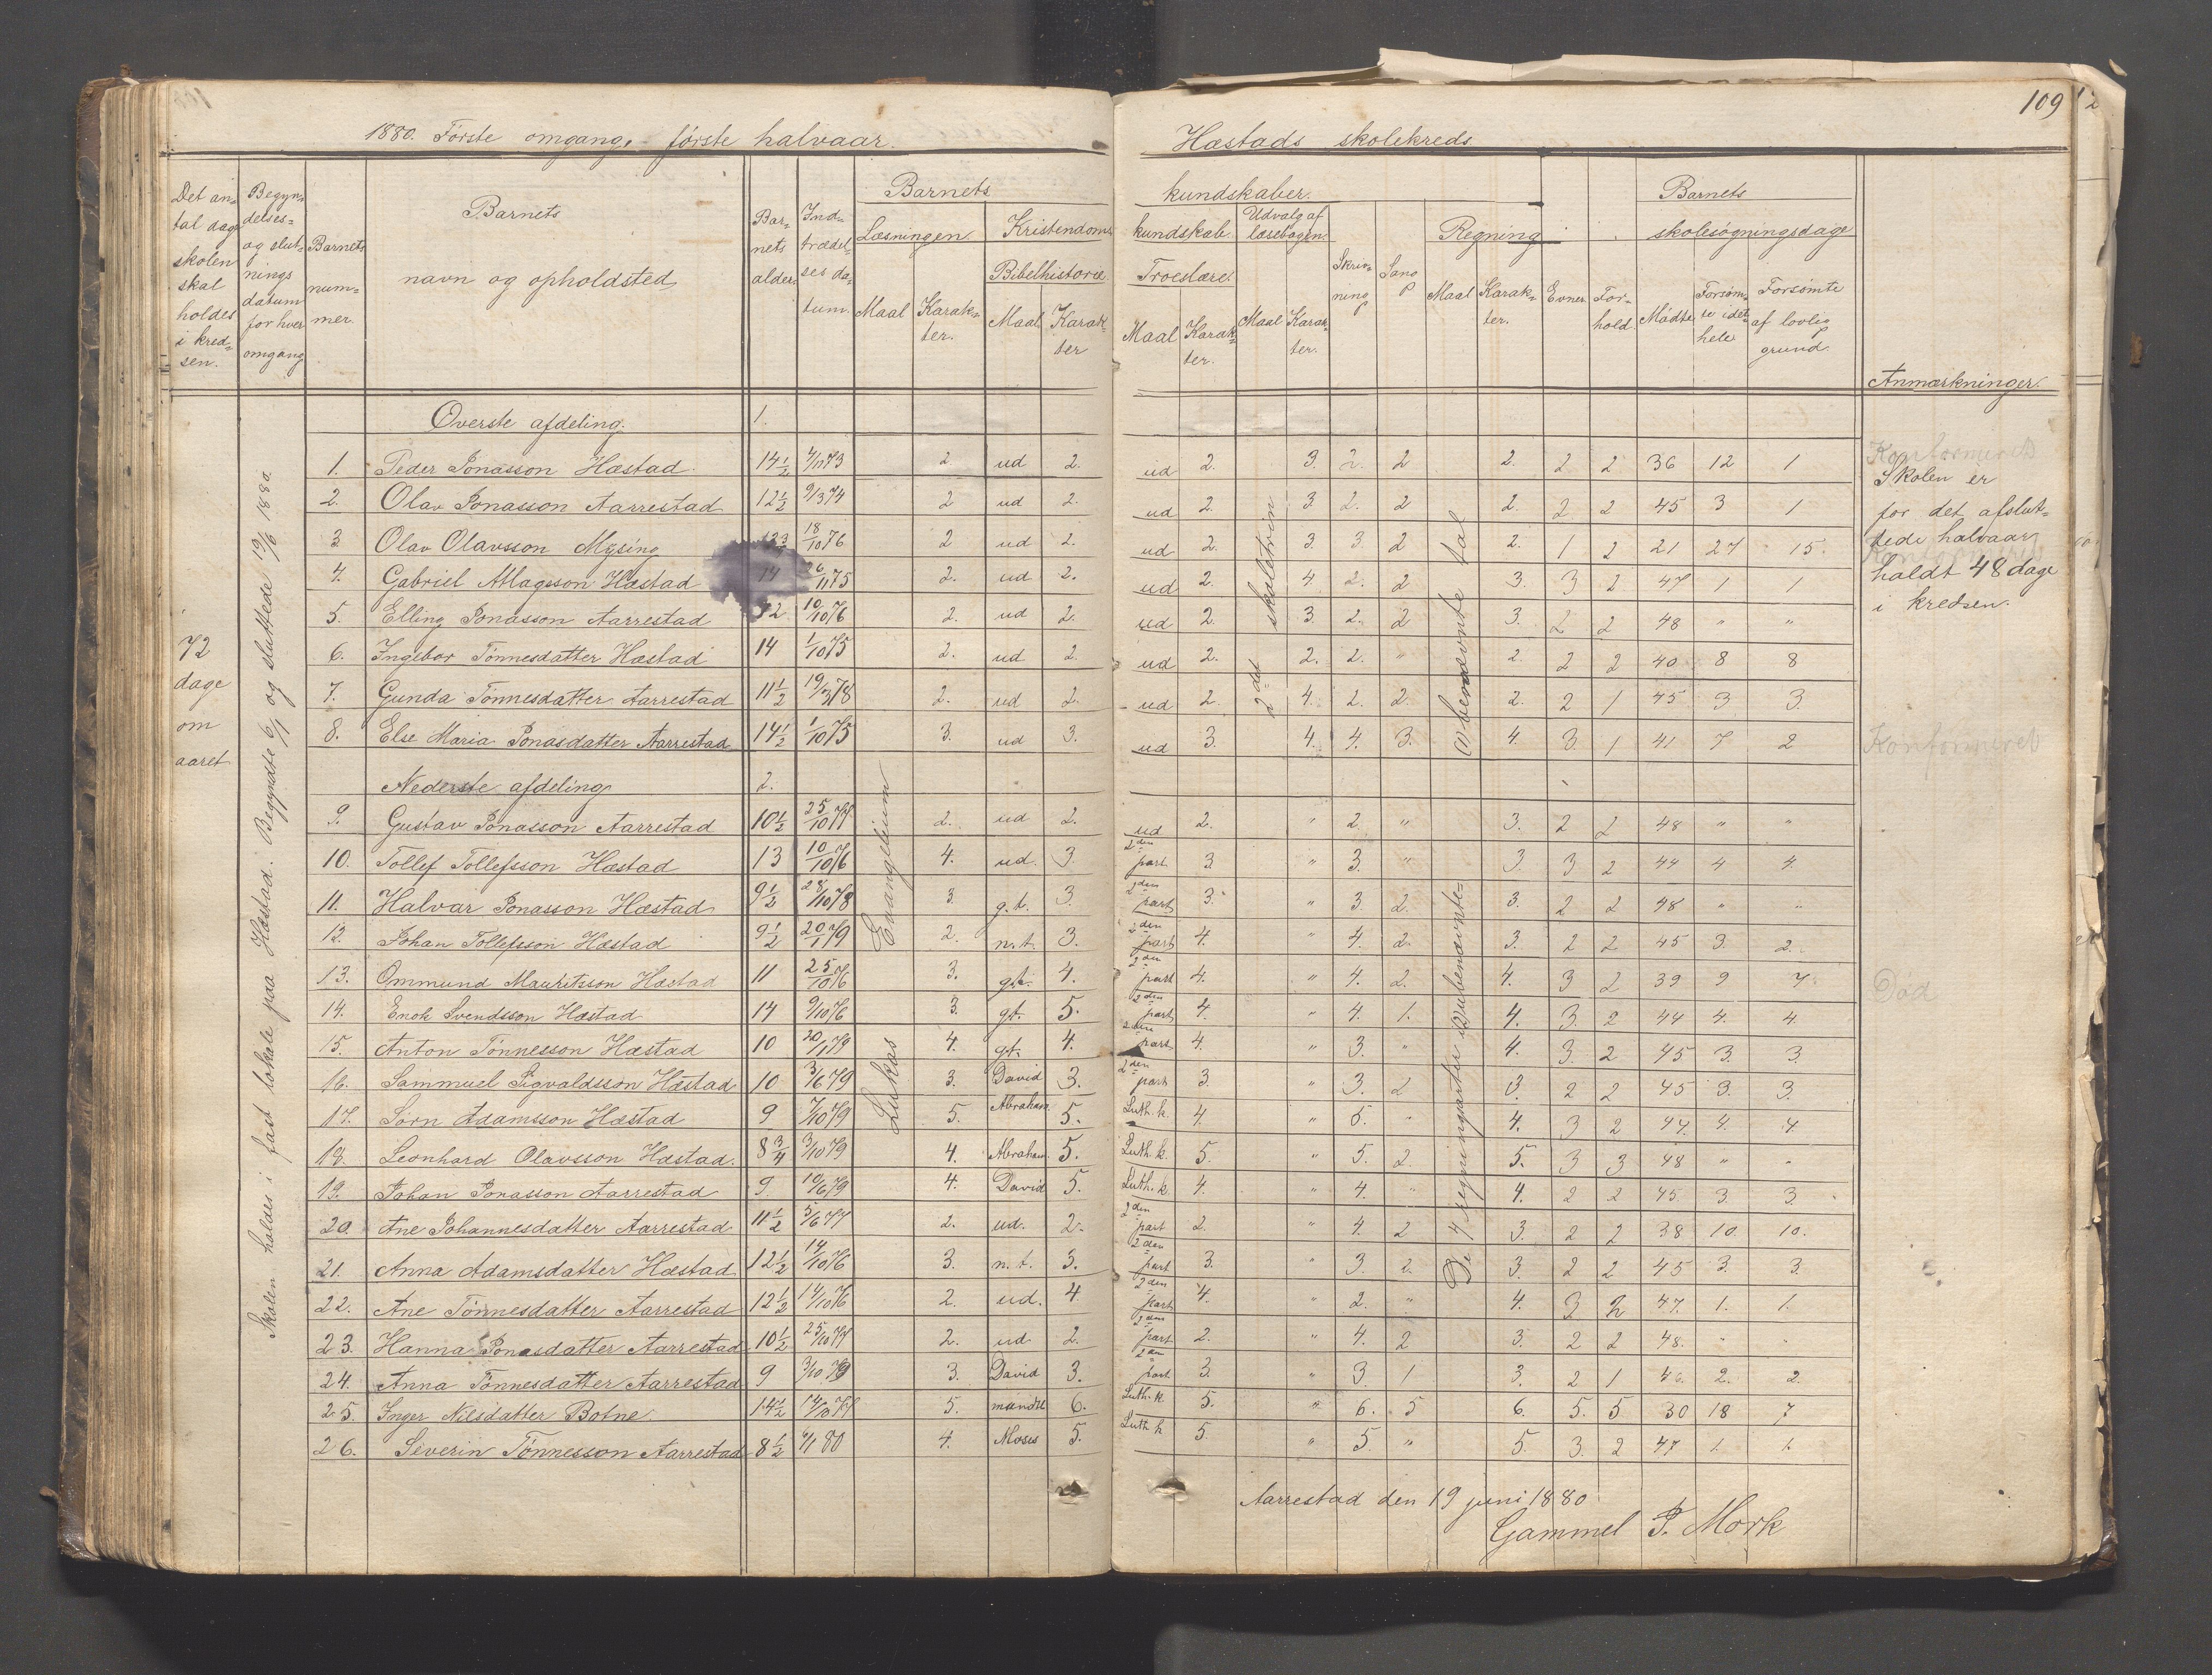 109
1880. Første omgang, første halvaar.
Hæstads skolekreds.
Det antal dage skolen skal holdes i kredsen.
Begyndelses= og slutnings datum for hver omgang
Barnets nummer.
Barnets navn og opholdsted
Barnets alder.
Indtrædelses datum.
Barnets kundskaber.
Læsningen. Maal Karakter.
Kristendoms kundskab.
Bibelhistorie. Maal. Karakter
Troeslære. Maal Karakter.
Udvalg af læsebogen. Maal Karakter.
Skrivning
Sang
Regning Maal Karakter.
Evner
Forhold.
Barnets skolesøgningsdage
Mødte Forsømte i det hele Forsømte af lovlig grund.
Anmærkninger.
72 dage om aaret
Skolen holdes i fast lokale paa Hæstad. Begyndte 6/1 og sluttede 19/6 1880.
Evangelium Lukas
2det skoletrin
Ubenævnte tal
De 4 regningsarter i ubenævnte=
Øverste afdeling. 1.
1. Peder Jonasson Hæstad. 14 1/2 4/11 73 2. ud 2. ud 2. 3. 2. 2 2. 2 2 36 12 1
2. Olav Jonasson Aarrestad 12 1/2 9/3 74 2 ud 2. ud 2. 3 2. 2 2. 2 2 45 3 1
3 Olav Olavsson Mysing 18/10 76 2 ud 2. ud 2. 3. 3. 2 2. 1 2 21 27 15.
4. Gabriel Atlagsson Hæstad 14 26/11 75 2. ud 2. ud 2. 4. 2. 2 3. 3 2 47 1 1
5. Elling Jonasson Aarrestad 12 10/10 76 2. ud 2. ud 2. 3. 2. 2 3. 2 2 48 " "
6. Ingebor Tønnesdatter Hæstad 14 1/10 75 2. ud 2. ud 2. 2. 2. " 2. 2 2 40 8 8
7. Gunda Tønnesdatter Aarrestad 11 1/2 19/3 78 2. ud 2. ud 2. 4. 2. 2. 2. 2 1 45 3 3.
8. Else Maria Jonasdatter Aarrestad 14 1/2 1/10 75 3. ud 3. ud 3. 4. 4. 3. 4. 3. 1 41 7 2
Nederste afdeling 2.
9. Gustav Jonasson Aarrestad 10 1/2 25/10 77 2. ud 2. ud 2. " 2. " 3. 2 2 48 " "
10. Tollef Tollefsson Hæstad 13 10/10 76 4. ud. 3. 2den part 3. " 3. " 3. 3 2 44 4 4.
11. Halvar Jonasson Hæstad 9 1/2 28/10 78 3. g.t. 3. 2den part 3. " 3. 2. 3. 2 2 48 " "
12. Johan Tollefsson Hæstad 9 1/2 20/1 79 2. n.t. 3. 2den part 4. " 4. 2. 3. 2 2 45 3. 2.
13. Ommund Mauritsson Hæstad 11 25/10 76 3. g.t. 4. 2den part 4. " 4. 2. 4. 3 2 39 9 7.
14. Enok Svendsson Hæstad 14 9/10 76 3. gt. 5. 2den part 4. " 4. 1. 4. 3. 2 44 4. 4.
15. Anton Tønnesson Hæstad 10 20/1 79 4. gt. 4. 2den part 4. " 3. " 4. 3. 2 45 3. 3.
16. Sammuel Sigvaldsson Hæstad 10 3/6 79 3. David 3. 2den part 3. " 3. 2 3. 2 2 45 3. 3.
17. Sørn Adamsson Hæstad 9 7/10 79 5. Abraham 5. Luth. k. 4. " 5. " 4. 3 2 44. 4. 4.
18. Leonhard Olavsson Hæstad. 8 3/4 3/10 79 4. Abraham 5. Luth. k. 5. " 5. 2. 5. 3 3 48 " "
19. Johan Jonasson Aarrestad 9. 10/6 79 4. David 5. Luth. k. 4. " 4. " 4. 2 2 45 3 3.
20. Ane Johannesdatter Aarrestad 11 1/2 5/6 77 2. ud. 2. 2den part 2. " 4. 2 3. 2 2 38 10. 10.
21. Anna Adamsdatter Hæstad 12 1/2 14/10 76 3. n.t. 3. 2den part 3. " 3. 2. 3. 2 2 45 3. 3.
22. Ane Tønnesdatter Aarrestad 12 1/2 14/10 76 2. ud. 4 2den part 4. " 2. " 4. 3 2 47. 1. 1.
23. Hanna Jonasdatter Aarrestad 10 1/2 25/10 77 2. ud 2. 2den part 2. " 4. 2 3. 2 2 48. " "
24. Anna Tønnesdatter Aarrestad 9 3/10 79 3. David 3. part 3. " 3 1 3. 2 1 46. 2. 2.
25. Inger Nilsdatter Botne 14 1/2 5. 6. Luth. k 5. " 6. 5 6. 5. 5 30 18 7
26. Severin Tønnesson Aarrestad 8 1/2 6/1 80 4. Moses 5. Luth k 5. " 5. " 5. 3. 2 47 1. 1.
Konformeret
Skolen er
for det afslut=
tede halvaar
holdt 48 dage
i kredsen.
Konformeret
Død
Aarrestad den 19 juni 1880
Gammel P. Mork